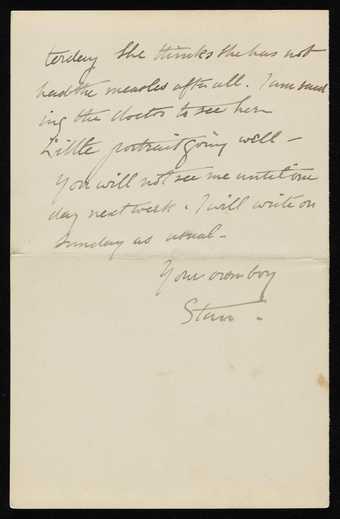 terday She thinks she has not
had the measles after all. I am send
ing the doctor to see her
Little portrait going well –
You will not see me until one
day next week. I will write on
Sunday as usual –
Your own boy